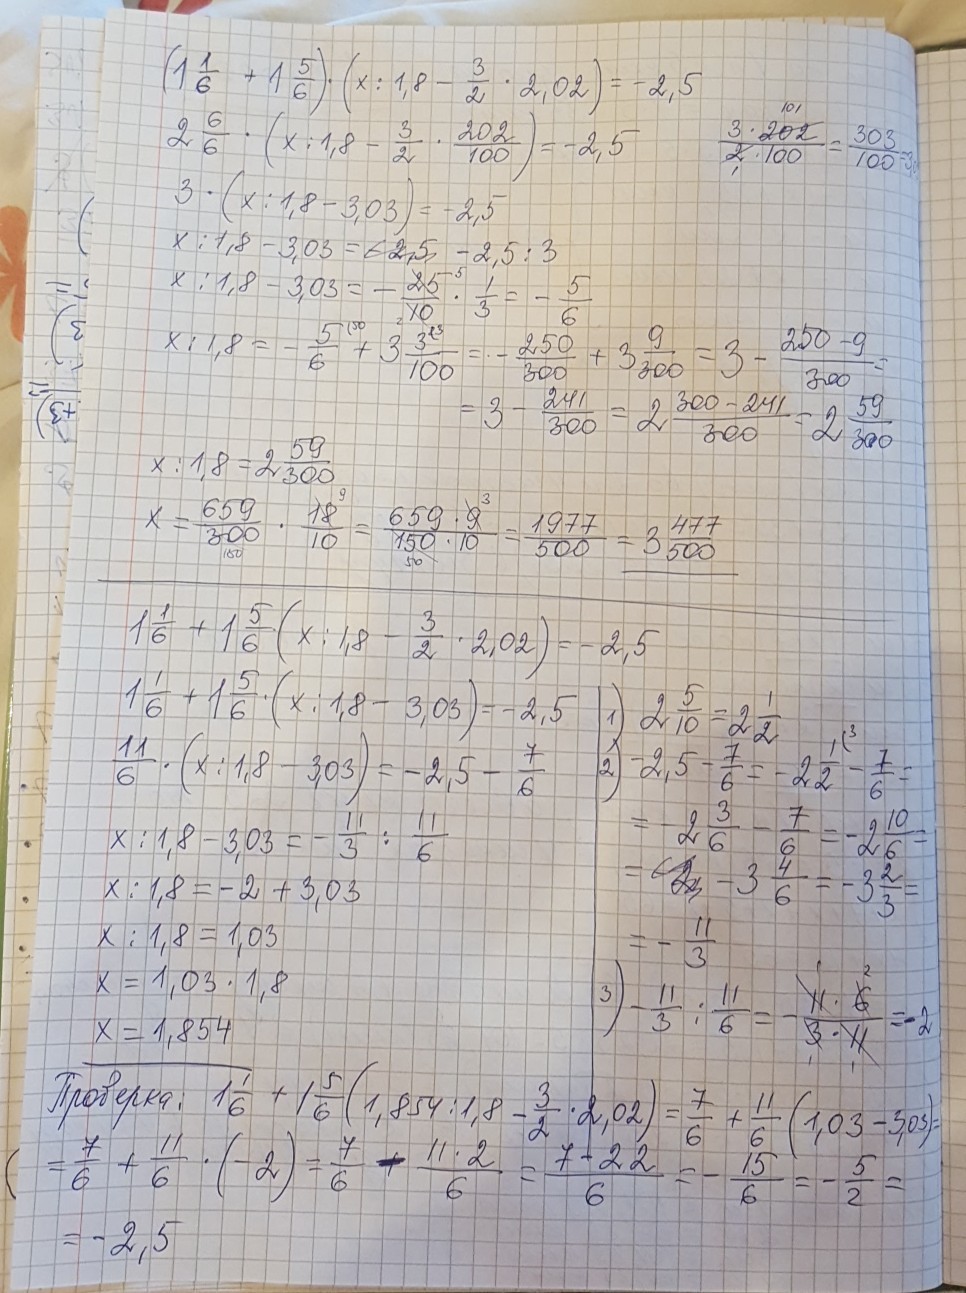 (1 1/6 + 1 5/6) · (x : 1,8 − 3/2 · 2,02) = −2,5
2 6/6 · (x : 1,8 − 3/2 · 202/100) = −2,5
3 · 202/2 · 100 = 303/100
3 · (x : 1,8 − 3,03) = −2,5
x : 1,8 − 3,03 = −2,5 : 3
x : 1,8 − 3,03 = − 25/10 · 1/3 = − 5/6
x : 1,8 = − 5/6 + 3 3/100 = − 250/300 + 3 9/300 = 3 − 250 − 9/300 =
= 3 − 241/300 = 2 300 − 241/300 = 2 59/300
x : 1,8 = 2 59/300
x = 659/300 · 18/10 = 659 · 9/150 · 10 = 1977/500 = 3 477/500
1 1/6 + 1 5/6 (x : 1,8 − 3/2 · 2,02) = −2,5
1 1/6 + 1 5/6 · (x : 1,8 − 3,03) = −2,5
11/6 · (x : 1,8 − 3,03) = −2,5 − 7/6
x : 1,8 − 3,03 = − 11/3 : 11/6
x : 1,8 = −2 + 3,03
x : 1,8 = 1,03
x = 1,03 · 1,8
x = 1,854
1) 2 5/10 = 2 1/2
2) −2,5 − 7/6 = −2 1/2 − 7/6 =
= −2 3/6 − 7/6 = −2 10/6 =
= −3 4/6 = −3 2/3 =
= − 11/3
3) − 11/3 : 11/6 = − 11 · 6/3 · 11 = −2
Проверка: 1 1/6 + 1 5/6 (1,854 : 1,8 − 3/2 · 2,02) = 7/6 + 11/6 (1,03 − 3,03) =
= 7/6 + 11/6 · (−2) = 7/6 − 11 · 2/6 = 7 − 22/6 = − 15/6 = − 5/2 =
= −2,5